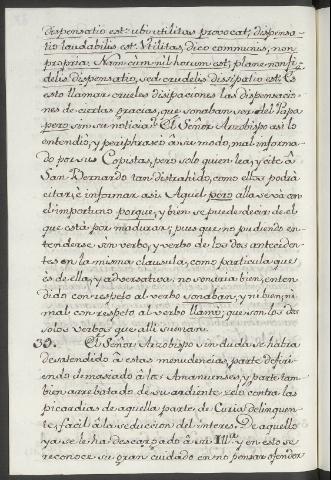 dispensatio est: ubi utilitas provocat, dispensa-
tio laudabilis est. Utilitas, dico communis, non
propria: Nam cum nil horum est, plane non fi-
delis dispensatio, sed crudelis dissipatio est. Es
esto llamar crueles disipaciones las dispensacio-
nes de ciertas gracias, que sonaban ser del Papa
pero sin su noticia? El Señor Arzobispo asi lo
entendió, y periphraseó a su modo, mal informa-
do por sus Copistas, pero solo quien lea, y cite â
San Bernardo tan distrahido, como ellos podia
citar, è informar asi. Aquel pero alla se và con
el importuno porque, y bien se puede decir de el
que està por madurar; pues que no pudiendo en-
tenderse sin verbo, y verbo de los dos anteceden-
tes en la misma clausula, como particula que
ès de ella, y adversativa no sonaria bien, enten-
dido con respeto al verbo sonaban, y ni bien, ni
mal con respeto al verbo llamó, que son los dos
solos verbos que alli suenan.
33. El Señor Arzobispo sin duda se habia
desatendido â estas menudencias, parte defiri-
endo demasiado à los Amanuenses, y parte tam-
bien arrebatado de su ardiente zelo contra las
picardias de aquella parte de Curia delinquen-
te, facil â la seducion del interes. De aquello
ya se le ha descargado â su Illma. y en esto se
reconoce su gran cuidado en no pensar ofender